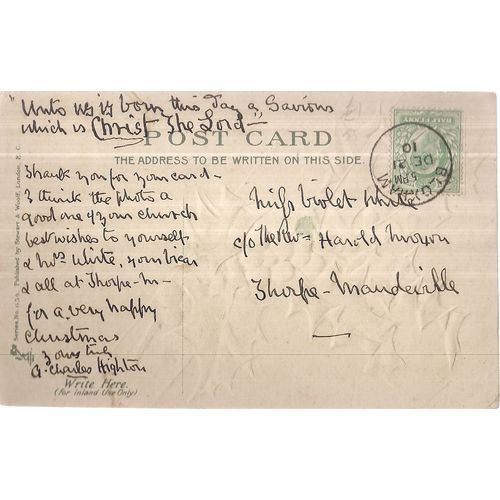 "Unto us is born this Day a Saviour
which is Christ The Lord"
POST CARD
THE ADDRESS TO BE WRITTEN ON THIS SIDE.
HALF PENNY
BYFIELD
5 PM
DE 21
10
Thank you for your card -
I think the photo a
good one of your church
best wishes to yourself
& Mrs White, your
& all at Thorpe-M-
for a very happy
Christmas
Yours truly
G. Charles Highton
Miss Violet White
c/o The Rev Harold
Thorpe-Mandeville
Write Here.
(For Inland Use Only)
Series No. Published by Stewart & Woolf, London, E.C.